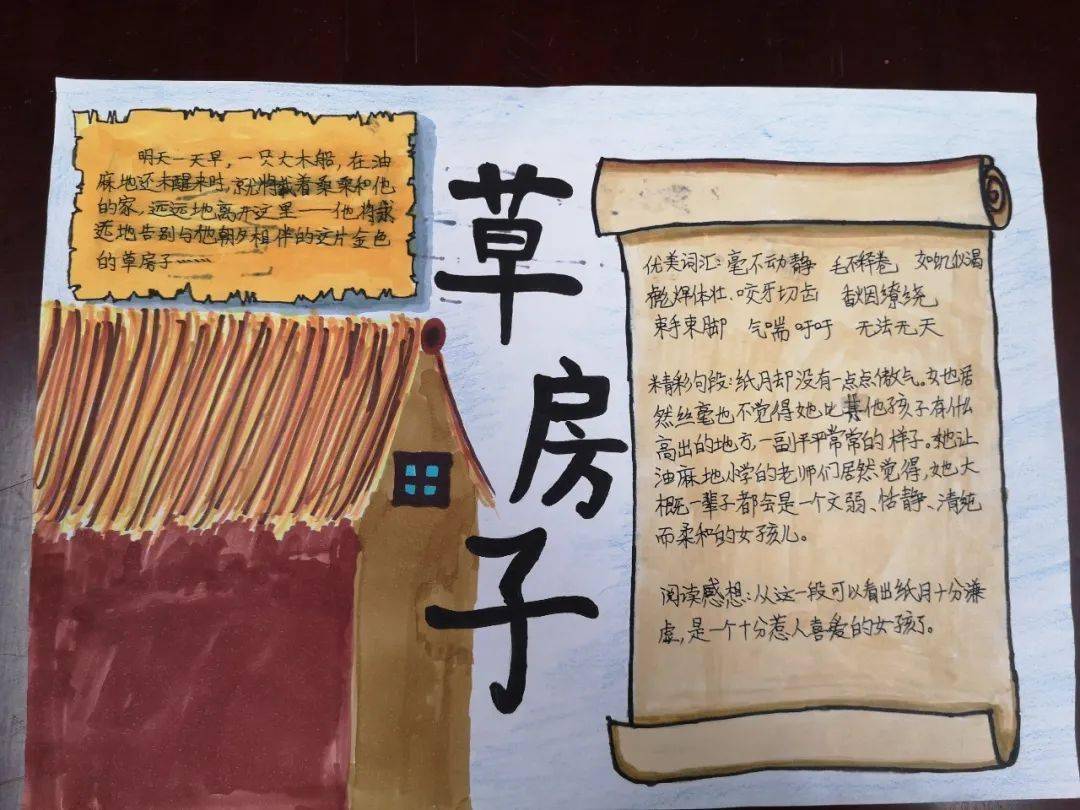 明天一天早，一只大木船，在油
麻地还未醒来时，就将载着桑桑和他
的家，远远地离开这里——他将永
远地告别与他朝夕相伴的这片金色
的草房子……
草房子
优美词汇：毫不动静 毛不释卷 如饥似渴
体壮、咬牙切齿 香烟缭绕
束手束脚 气喘吁吁 无法无天
精彩句段：纸月却没有一点点傲气。女也居
然丝毫也不觉得她比其他孩子有什么
高出的地方，一副平平常常的样子。她让
油麻地小学的老师们居然觉得，她大
概一辈子都会是一个文弱、恬静、清纯
而柔和的女孩儿。
阅读感想：从这一段可以看出纸月十分谦
虚，是一个十分惹人喜爱的女孩了。